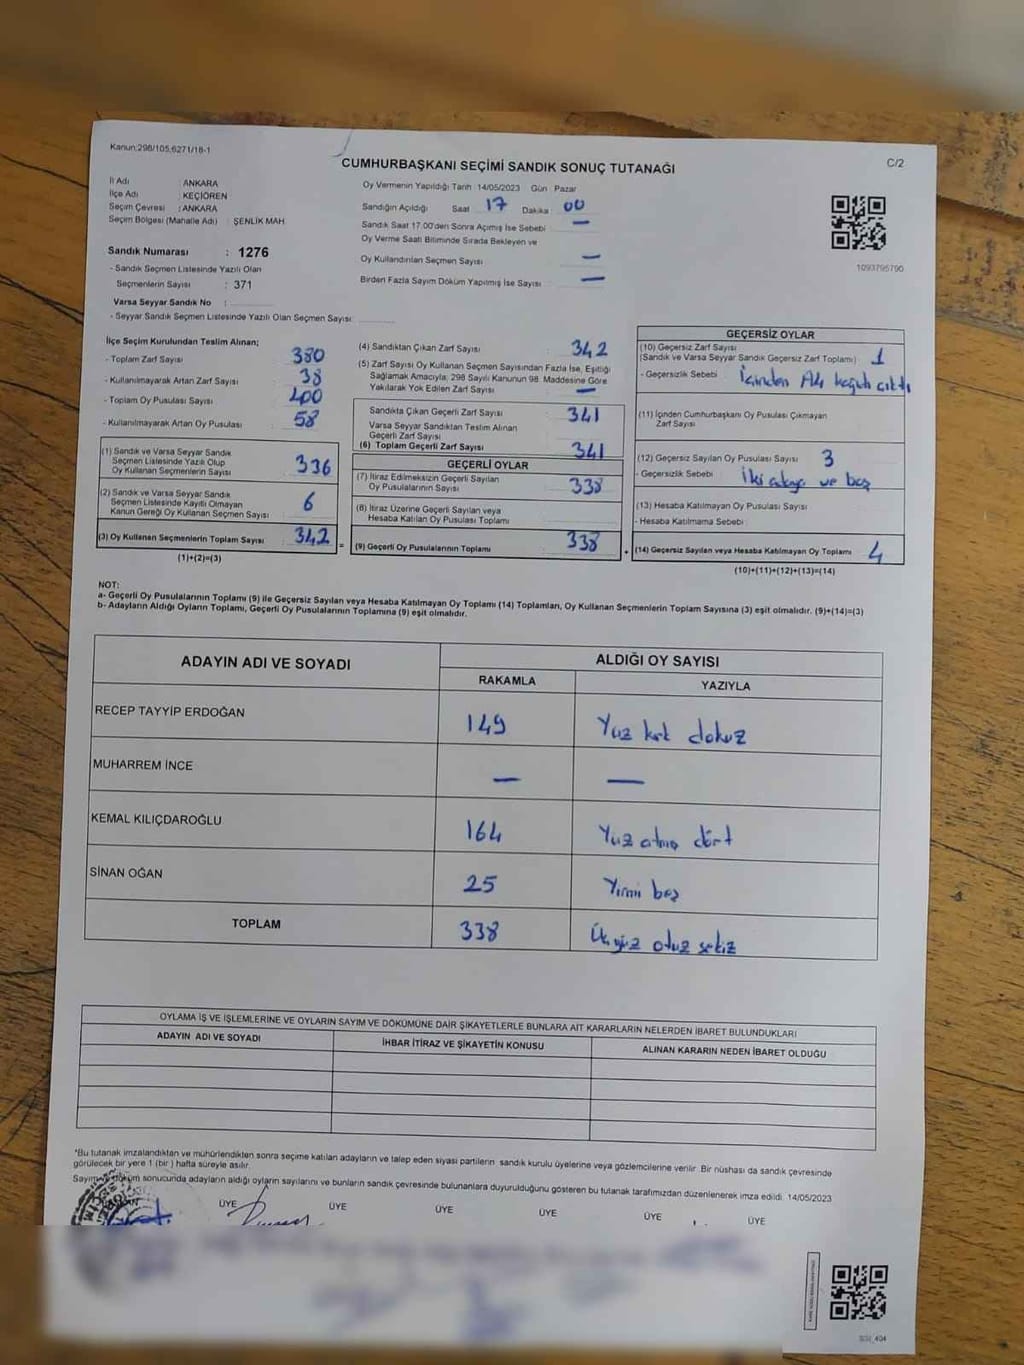 Kanun:298/105,6271/18-1
C/2
CUMHURBAŞKANI SEÇİMİ SANDIK SONUÇ TUTANAĞI
İl Adı : ANKARA
İlçe Adı : KEÇİÖREN
Seçim Çevresi : ANKARA
Seçim Bölgesi (Mahalle Adı) : ŞENLİK MAH
Sandık Numarası : 1276
- Sandık Seçmen Listesinde Yazılı Olan
Seçmenlerin Sayısı : 371
Varsa Seyyar Sandık No :
- Seyyar Sandık Seçmen Listesinde Yazılı Olan Seçmen Sayısı:
Oy Vermenin Yapıldığı Tarih 14/05/2023 Gün Pazar
Sandığın Açıldığı Saat 17 Dakika 00
Sandık Saat 17.00'den Sonra Açımış İse Sebebi —
Oy Verme Saati Bitiminde Sırada Bekleyen ve
Oy Kullandırılan Seçmen Sayısı —
Birden Fazla Sayım Döküm Yapılmış İse Sayısı —
1093795790
İlçe Seçim Kurulundan Teslim Alınan;
- Toplam Zarf Sayısı 380
- Kullanılmayarak Artan Zarf Sayısı 38
- Toplam Oy Pusulası Sayısı 400
- Kullanılmayarak Artan Oy Pusulası 58
(1) Sandık ve Varsa Seyyar Sandık
Seçmen Listesinde Yazılı Olup
Oy Kullanan Seçmenlerin Sayısı 336
(2) Sandık ve Varsa Seyyar Sandık
Seçmen Listesinde Kayıtlı Olmayan
Kanun Gereği Oy Kullanan Seçmen Sayısı 6
(3) Oy Kullanan Seçmenlerin Toplam Sayısı 342 =
(1)+(2)=(3)
(4) Sandıktan Çıkan Zarf Sayısı 342
(5) Zarf Sayısı Oy Kullanan Seçmen Sayısından Fazla İse, Eşitliği
Sağlamak Amacıyla; 298 Sayılı Kanunun 98. Maddesine Göre
Yakılarak Yok Edilen Zarf Sayısı —
Sandıkta Çıkan Geçerli Zarf Sayısı 341
Varsa Seyyar Sandıktan Teslim Alınan
Geçerli Zarf Sayısı
(6) Toplam Geçerli Zarf Sayısı 341
GEÇERLİ OYLAR
(7) İtiraz Edilmeksizin Geçerli Sayılan
Oy Pusulalarının Sayısı 338
(8) İtiraz Üzerine Geçerli Sayılan veya
Hesaba Katılan Oy Pusulası Toplamı
(9) Geçerli Oy Pusulalarının Toplamı 338
GEÇERSİZ OYLAR
(10) Geçersiz Zarf Sayısı
(Sandık ve Varsa Seyyar Sandık Geçersiz Zarf Toplamı) 1
- Geçersizlik Sebebi : İçinden kağıdı çıktı
(11) İçinden Cumhurbaşkanı Oy Pusulası Çıkmayan
Zarf Sayısı
(12) Geçersiz Sayılan Oy Pusulası Sayısı 3
- Geçersizlik Sebebi : İki adaya ve boş
(13) Hesaba Katılmayan Oy Pusulası Sayısı
- Hesaba Katılmama Sebebi :
(14) Geçersiz Sayılan veya Hesaba Katılmayan Oy Toplamı 4
(10)+(11)+(12)+(13)=(14)
NOT:
a- Geçerli Oy Pusulalarının Toplamı (9) ile Geçersiz Sayılan veya Hesaba Katılmayan Oy Toplamı (14) Toplamları, Oy Kullanan Seçmenlerin Toplam Sayısına (3) eşit olmalıdır. (9)+(14)=(3)
b- Adayların Aldığı Oyların Toplamı, Geçerli Oy Pusulalarının Toplamına (9) eşit olmalıdır.
ADAYIN ADI VE SOYADI
ALDIĞI OY SAYISI
RAKAMLA YAZIYLA
RECEP TAYYİP ERDOĞAN 149 Yüz kırk dokuz
MUHARREM İNCE — —
KEMAL KILIÇDAROĞLU 164 Yüz atmış dört
SİNAN OĞAN 25 Yirmi beş
TOPLAM 338 Üçyüz otuz sekiz
OYLAMA İŞ VE İŞLEMLERİNE VE OYLARIN SAYIM VE DÖKÜMÜNE DAİR ŞİKAYETLERLE BUNLARA AİT KARARLARIN NELERDEN İBARET BULUNDUKLARI
ADAYIN ADI VE SOYADI İHBAR İTİRAZ VE ŞİKAYETİN KONUSU ALINAN KARARIN NEDEN İBARET OLDUĞU
*Bu tutanak imzalandıktan ve mühürlendikten sonra seçime katılan adayların ve talep eden siyasi partilerin sandık kurulu üyelerine veya gözlemcilerine verilir. Bir nüshası da sandık çevresinde
görülecek bir yere 1 (bir ) hafta süreyle asılır.
Sayım ve döküm sonucunda adayların aldığı oyların sayılarını ve bunların sandık çevresinde bulunanlara duyurulduğunu gösteren bu tutanak tarafımızdan düzenlenerek imza edildi. 14/05/2023
ÜYE ÜYE ÜYE ÜYE ÜYE ÜYE